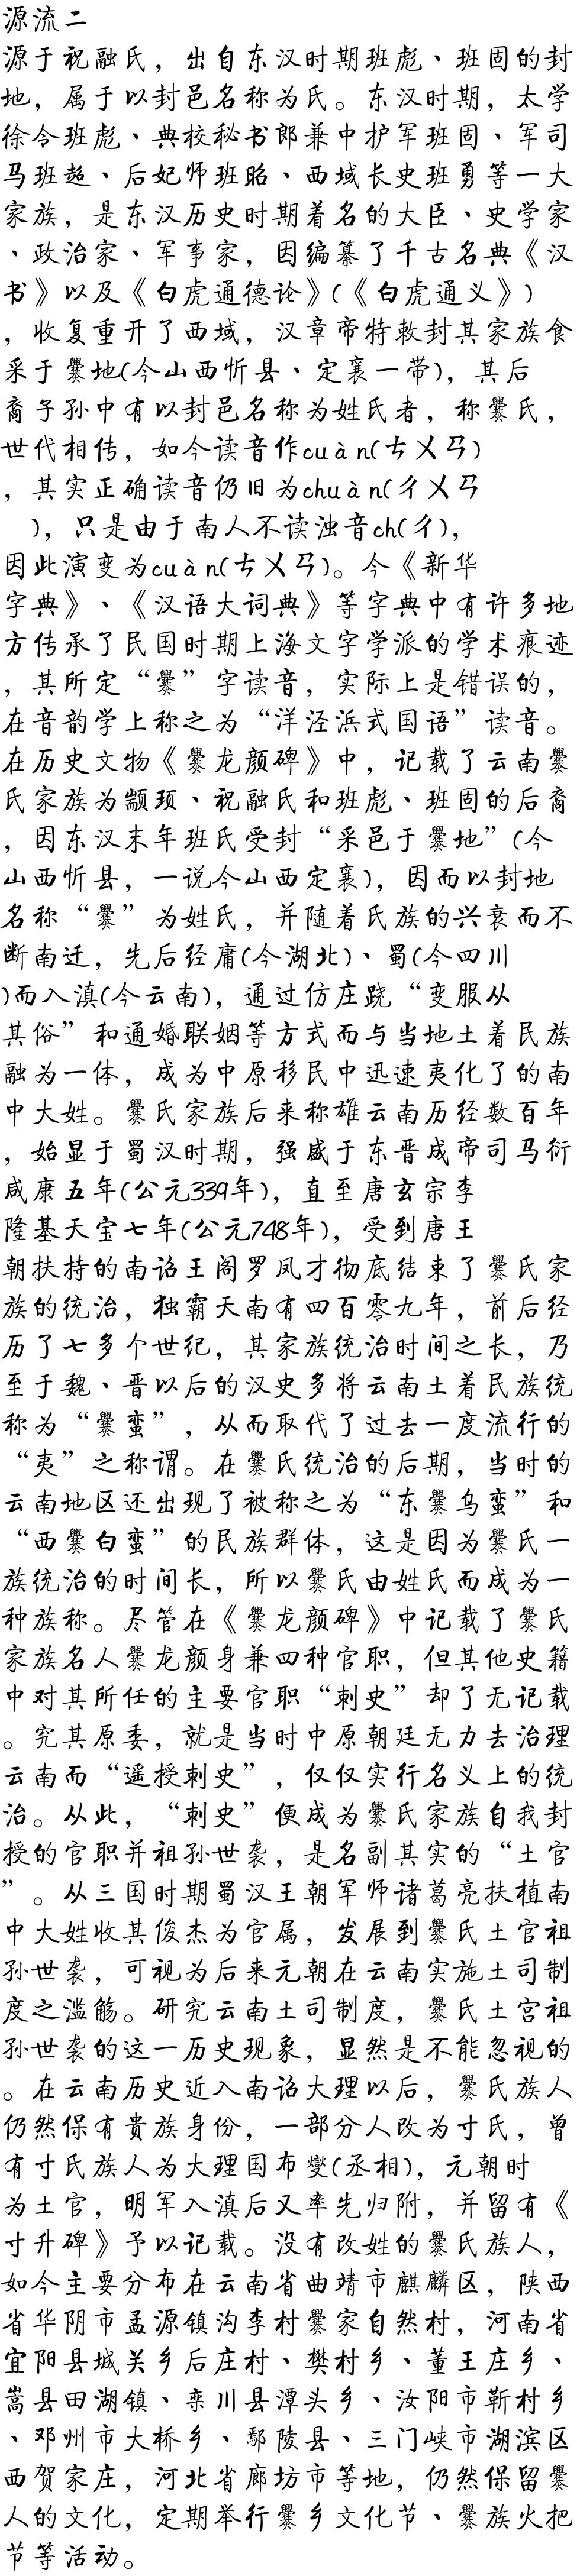 源流二
源于祝融氏，出自东汉时期班彪、班固的封
地，属于以封邑名称为氏。东汉时期，太学
徐令班彪、典校秘书郎兼中护军班固、军司
马班超、后妃师班昭、西域长史班勇等一大
家族，是东汉历史时期着名的大臣、史学家
、政治家、军事家，因编纂了千古名典《汉
书》以及《白虎通德论》(《白虎通义》)
，收复重开了西域，汉章帝特敕封其家族食
采于爨地(今山西忻县、定襄一带)，其后
裔子孙中有以封邑名称为姓氏者，称爨氏，
世代相传，如今读音作cuàn(ㄘㄨㄢ)
，其实正确读音仍旧为chuàn(ㄔㄨㄢ
)，只是由于南人不读浊音ch(ㄔ)，
因此演变为cuàn(ㄘㄨㄢ)。今《新华
字典》、《汉语大词典》等字典中有许多地
方传承了民国时期上海文字学派的学术痕迹
，其所定“爨”字读音，实际上是错误的，
在音韵学上称之为“洋泾浜式国语”读音。
在历史文物《爨龙颜碑》中，记载了云南爨
氏家族为颛顼、祝融氏和班彪、班固的后裔
，因东汉末年班氏受封“采邑于爨地”(今
山西忻县，一说今山西定襄)，因而以封地
名称“爨”为姓氏，并随着氏族的兴衰而不
断南迁，先后经庸(今湖北)、蜀(今四川
)而入滇(今云南)，通过仿庄蹺“变服从
其俗”和通婚联姻等方式而与当地土着民族
融为一体，成为中原移民中迅速夷化了的南
中大姓。爨氏家族后来称雄云南历经数百年
，始显于蜀汉时期，强盛于东晋成帝司马衍
咸康五年(公元339年)，直至唐玄宗李
隆基天宝七年(公元748年)，受到唐王
朝扶持的南诏王阁罗凤才彻底结束了爨氏家
族的统治，独霸天南有四百零九年，前后经
历了七多个世纪，其家族统治时间之长，乃
至于魏、晋以后的汉史多将云南土着民族统
称为“爨蛮”，从而取代了过去一度流行的
“夷”之称谓。在爨氏统治的后期，当时的
云南地区还出现了被称之为“东爨乌蛮”和
“西爨白蛮”的民族群体，这是因为爨氏一
族统治的时间长，所以爨氏由姓氏而成为一
种族称。尽管在《爨龙颜碑》中记载了爨氏
家族名人爨龙颜身兼四种官职，但其他史籍
中对其所任的主要官职“刺史”却了无记载
。究其原委，就是当时中原朝廷无力去治理
云南而“遥授刺史”，仅仅实行名义上的统
治。从此，“刺史”便成为爨氏家族自我封
授的官职并祖孙世袭，是名副其实的“土官
”。从三国时期蜀汉王朝军师诸葛亮扶植南
中大姓收其俊杰为官属，发展到爨氏土官祖
孙世袭，可视为后来元朝在云南实施土司制
度之滥觞。研究云南土司制度，爨氏土宫祖
孙世袭的这一历史现象，显然是不能忽视的
。在云南历史近入南诏大理以后，爨氏族人
仍然保有贵族身份，一部分人改为寸氏，曾
有寸氏族人为大理国布燮(丞相)，元朝时
为土官，明军入滇后又率先归附，并留有《
寸升碑》予以记载。没有改姓的爨氏族人，
如今主要分布在云南省曲靖市麒麟区，陕西
省华阴市孟源镇沟李村爨家自然村，河南省
宜阳县城关乡后庄村、樊村乡、董王庄乡、
嵩县田湖镇、栾川县潭头乡、汝阳市靳村乡
、邓州市大桥乡、鄢陵县、三门峡市湖滨区
西贺家庄，河北省廊坊市等地，仍然保留爨
人的文化，定期举行爨乡文化节、爨族火把
节等活动。